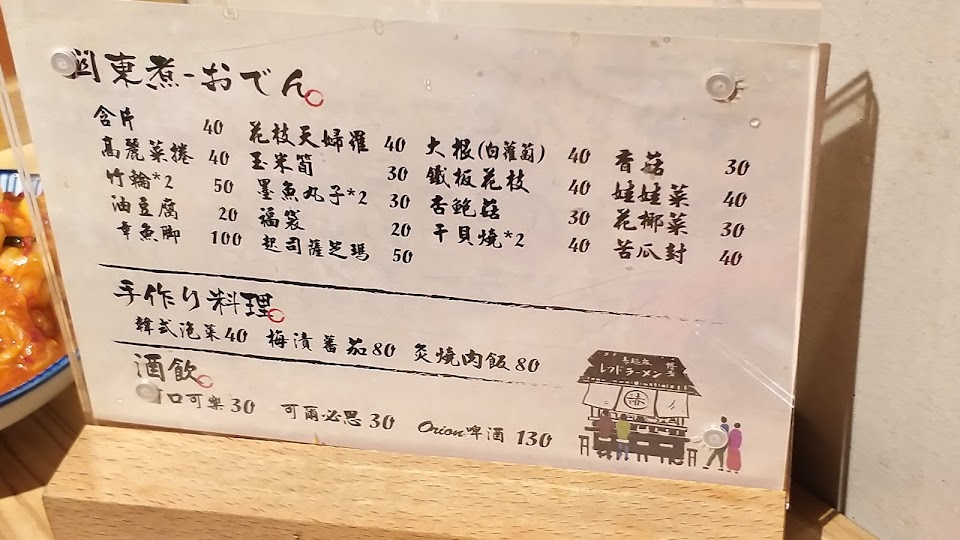 関東煮-おでん
含片 40
高麗菜捲 40
竹輪*2 50
油豆腐 20
章魚脚 100
花枝天婦羅 40
玉米筍 30
墨魚丸子*2 30
福袋 20
起司薩芝瑪 50
大根(白蘿蔔) 40
鐵板花枝 40
杏鮑菇 30
干貝燒*2 40
香菇 30
娃娃菜 40
花椰菜 30
苦瓜封 40
手作り料理
韓式泡菜40 梅漬蕃茄80 炙燒肉飯80
酒飲
口可樂30 可爾必思30 Orion啤酒 130
レッドラーメン
赤